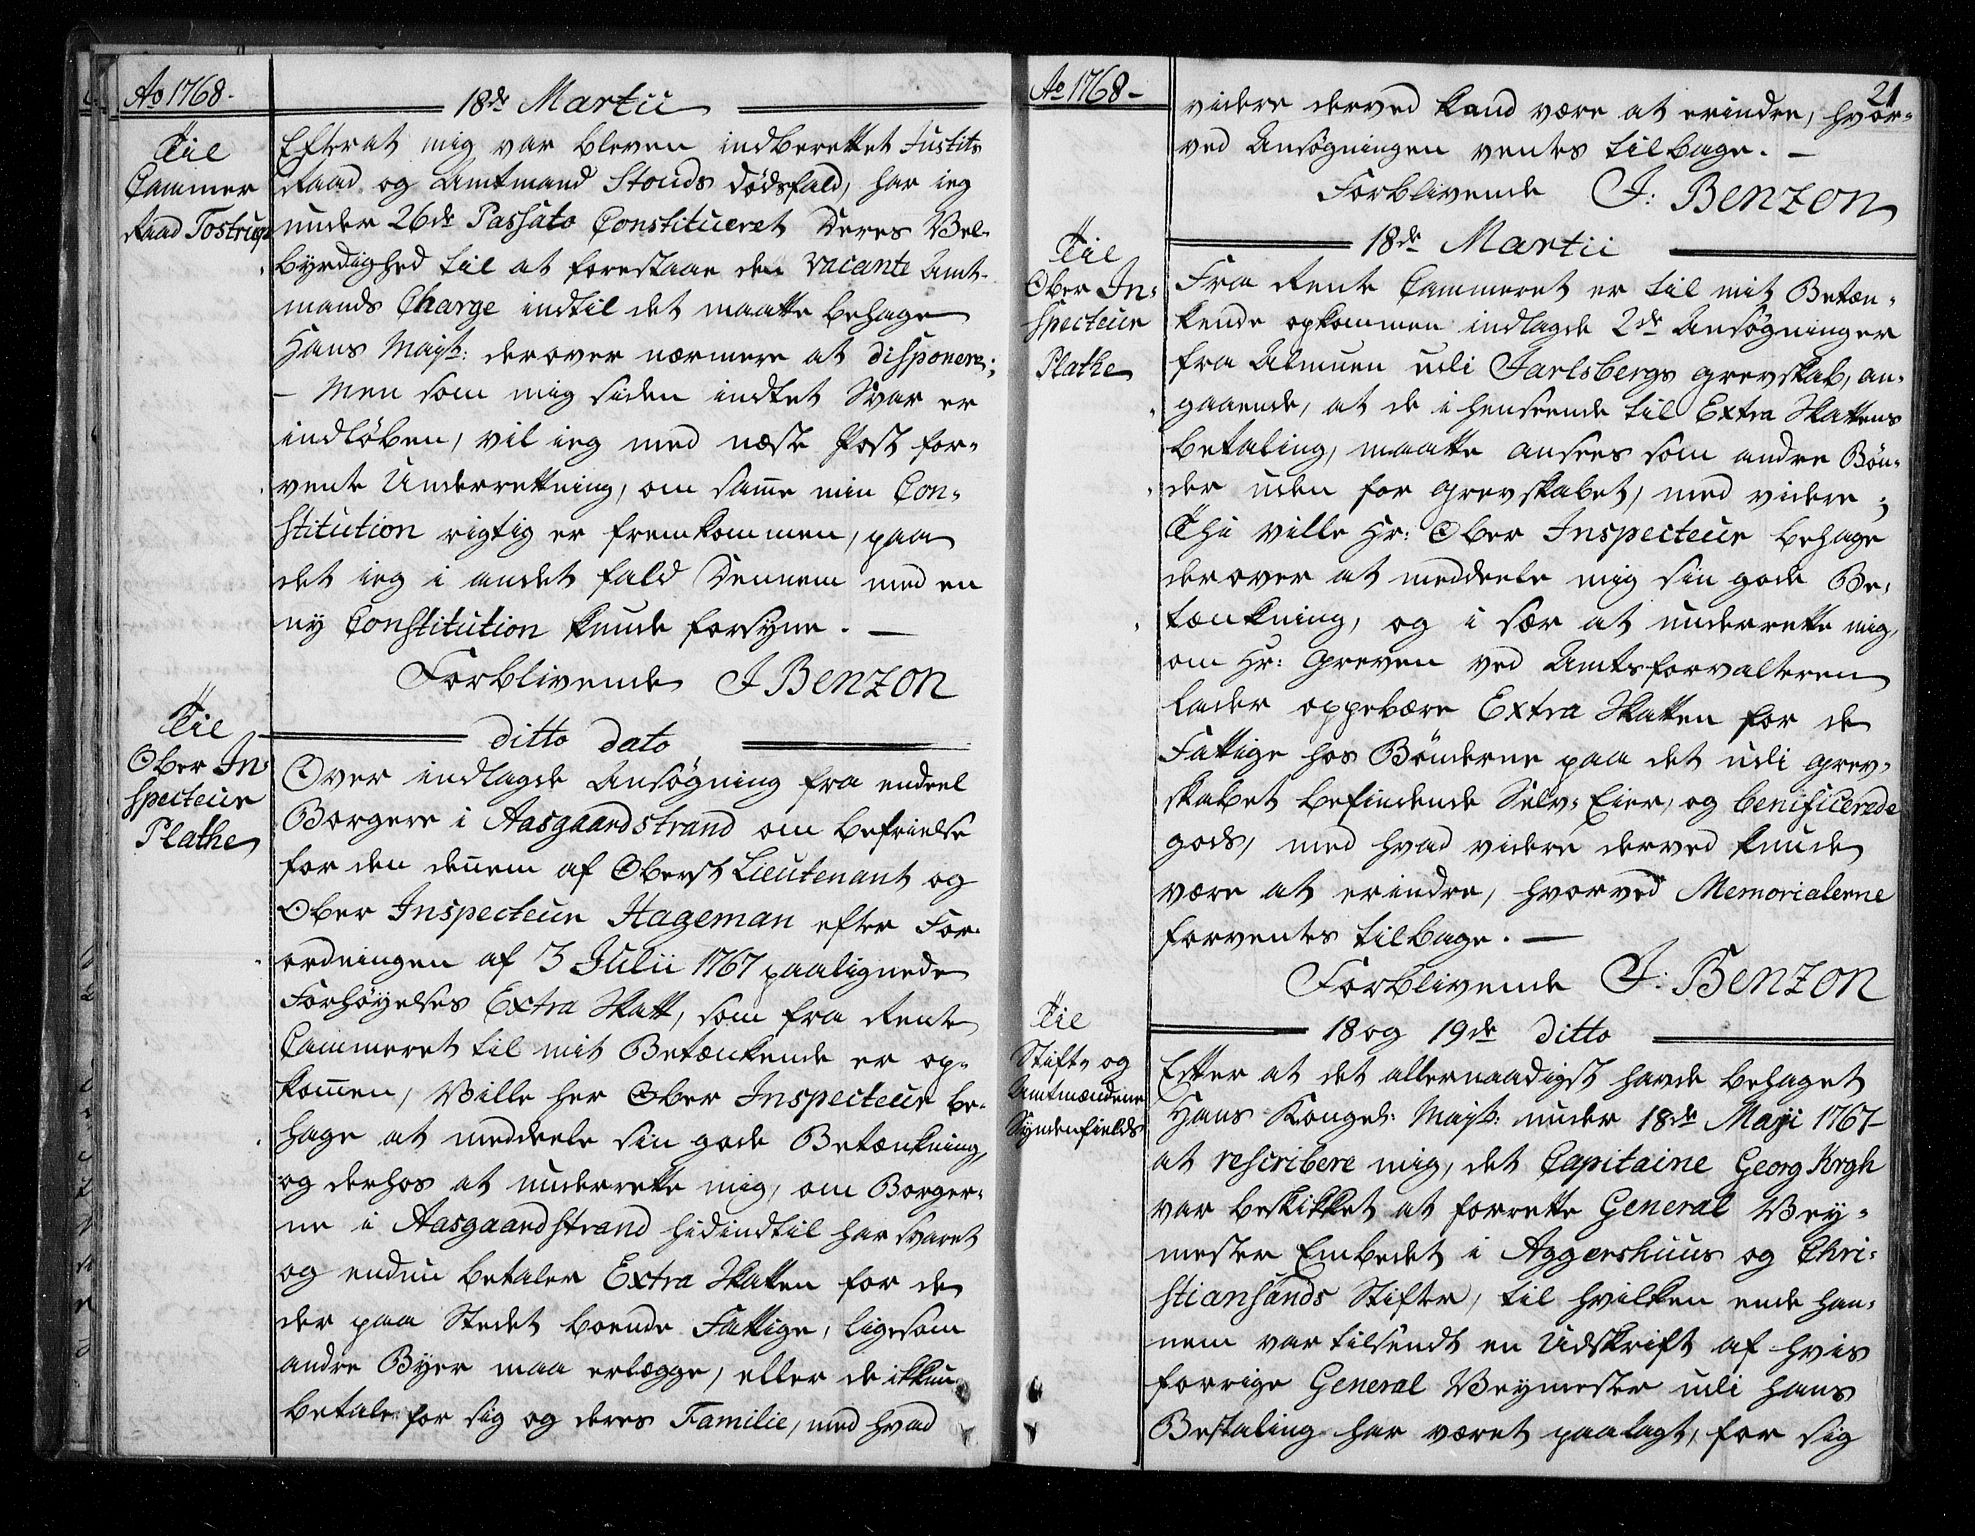 Ao 1768.
18de Martii
Til
Cammer
Raad Tostrup
Efterat mig var bleven indberettet Justits
Raad og Amtmand Stouds dødsfald, har ieg
under 26de Passato Constitueret Deres Vel-
byrdighed til at forestaae den vacante Amt-
mands Charge indtil det maatte behage
Hans Mayt: derover nærmere at disponere;
– Men som mig siden indtet Svar er
indløben, vil ieg med næste Post for-
vente Underrettning, om samme min Con-
stitution rigtig er fremkommen, paa
det ieg i andet fald Dennem med en
ny Constitution kunde forsyne. —
Forblivende J Benzon
ditto dato
Til
Ober In-
specteur
Plathe
Over indlagde Ansøgning fra endeel
Borgere i Aasgaardstrand om befrielse
for den dennem af Oberst Lieutenant og
Ober Inspecteur Hageman efter For-
ordningen af 3 Julii 1767 paalignede
Forhøyelses Extra Skatt, som fra Rente
Cammeret til mit Betænkende er op-
kommen, Wille her Ober Inspecteur be-
hage at meddeele sin gode Betænkning,
og derhos at underrette mig, om Borger-
ne i Aasgaardstrand hidindtil har svaret
og endnu betaler Extra Skatten for de
der paa Stedet boende Fattige, ligesom
andre Byer maa erlægge, eller de ikkun
betale for sig og deres Familie, med hvad
Ao 1768–
21
videre derved kand være at erindre, hvor-
ved Ansøgningen ventes tilbage. —
Forblivende J: Benzon
18de Martii
Til
Ober In-
specteur
Plathe
Fra Rente Cammeret er til mit Betæn-
kende opkommen indlagde 2de Ansøgninger
fra Almuen udi Jarlsbergs grevskab, an-
gaaende, at de i henseende til Extra Skattens
betaling, maatte ansees som andre Bøn-
der uden for grevskabet, med videre;
Thi ville Hr: Ober Inspecteur behage
derover at meddeele mig sin gode Be-
tænkning, og i sær at underrette mig,
om Hr: Greven ved Amtsforvalteren
lader oppebære Extra Skatten for de
Fattige hos Bønderne paa det udi grev-
skabet befindende Selv-Eier, og benificerede
gods, med hvad videre derved kunde
være at erindre, hvorved Memorialerne
forventes tilbage. —
Forblivende J: Benzon
18 og 19de ditto
Til
Stift- og
Amtmændene
Syndenfields
Efter at det allernaadigst havde behaget
Hans Kongel: Mayt: under 18de Maji 1767–
at rescribere mig, det Capitaine Georg Krgh
var beskikket at forrette General Vey-
mester Embedet i Aggershuus og Chri-
stiansands Stifter, til hvilken ende han-
nem var tilsendt en Udskrift af hvis
forrige General Veymester udi hans
Bestaling har været paalagt, for sig